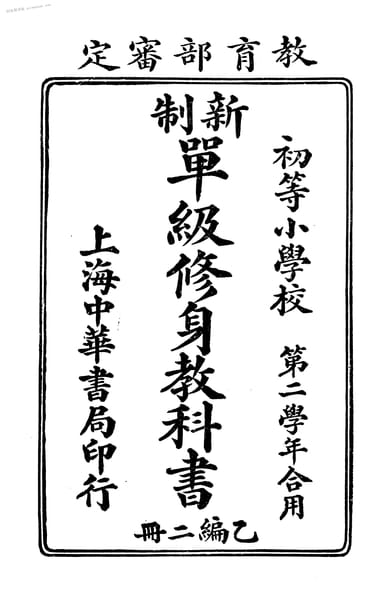 教育部審定
初等小學校 第二學年合用
新制
單級修身教科書
乙編二冊
上海中華書局印行